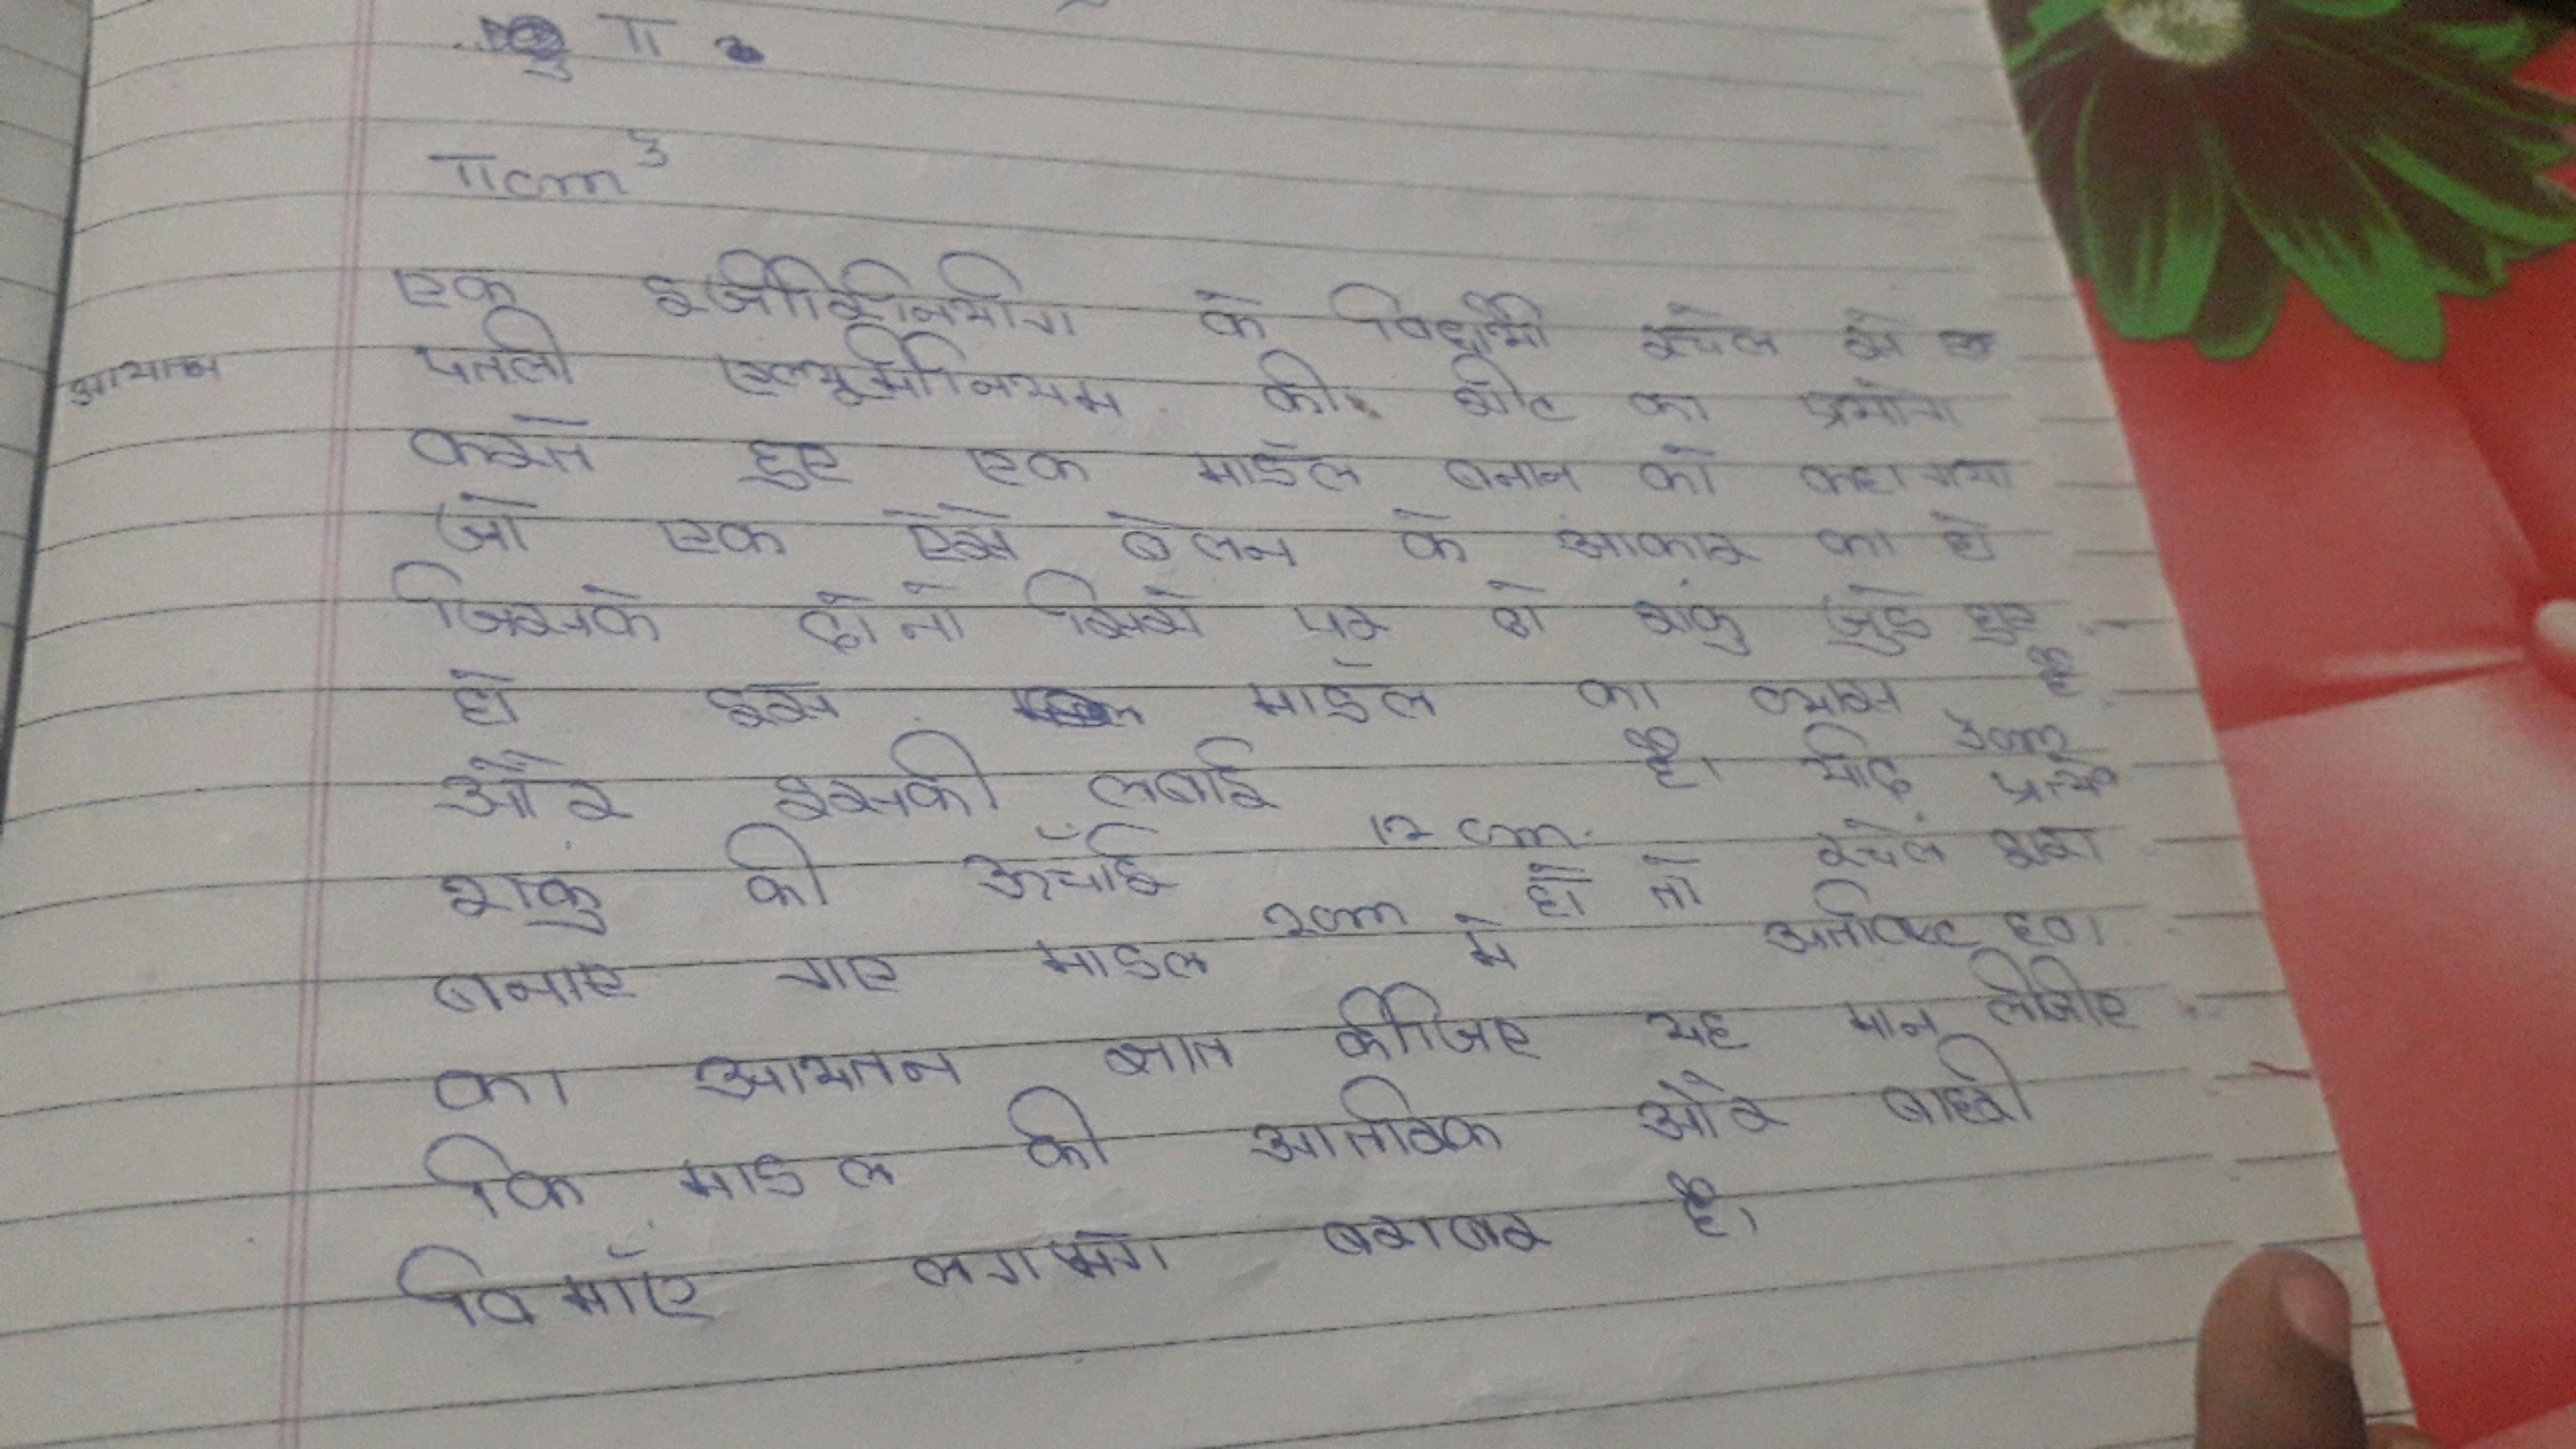 π
πcm³
एक इंजीनियरिंग के विद्यार्थी रचेल से
आयातन
पतली एल्यूमीनियम की शीट का प्रयोग
करते हुए एक माडॅल बनान को कहा गया
जो एक ऐसे बेलन के आकार का हो
जिसके दोनो सिरो पर दो शंकु जुडे हुए
हो इस माडॅल का व्यास 3cm है
और इसकी लबाई 12 cm है। यदि प्रत्येक
शंकु की ऊँचाई 2cm हो तो रचेल द्वारा
बनाए गए माडल में अतविष्ट हवा
का आयतन ज्ञात कीजिए यह मान लीजीए
कि माडल की आतरिक और बाहरी
विमाँए लगभग बराबर है।